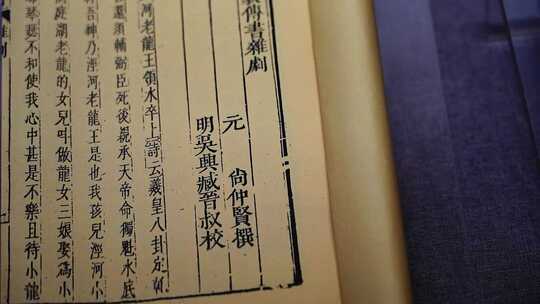 毅傳書雜劇
元 尙仲賢撰
明吳興臧晉叔校
河老龍王領水卒上詩云羲皇八卦定
還須輔弼臣死後親承天帝命獨魁水底
吾神乃涇河老龍王是也我孩兒涇河小
庭湖老龍的女兒呌做龍女三娘娶爲小
琴瑟不和使我心中甚是不樂且待小龍
雜劇